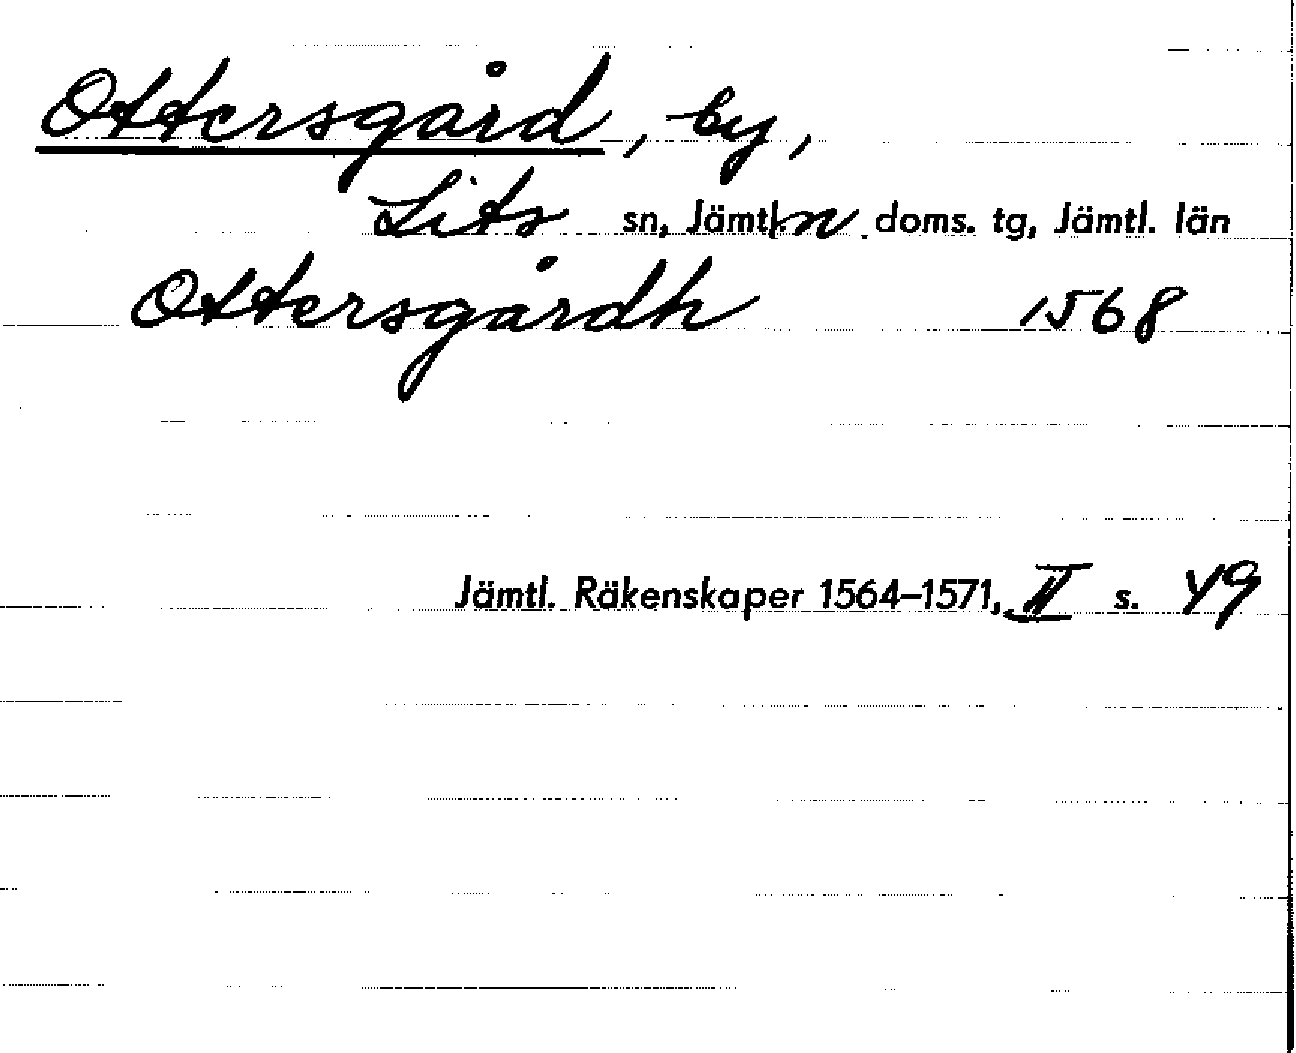 Ottersgård, by,
Lits sn, Jämtl. n doms. tg, Jämtl. län
Ottersgårdh 1568
Jämtl. Räkenskaper 1564–1571, II s. 49